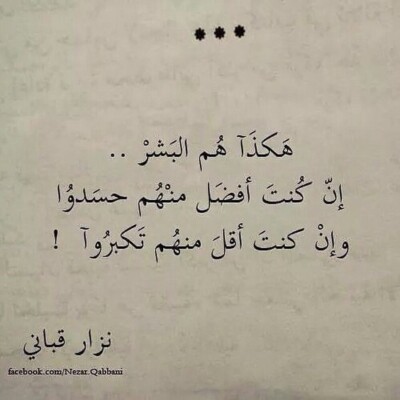 ***
هَكذَآ هُم البَشرْ ..
إنّ كُنتَ أفضَل منْهُم حسَدوُا
وإنْ كنتَ أقلَ منهُم تَكبرُوآ !
نزار قباني
facebook.com/Nezar.Qabbani